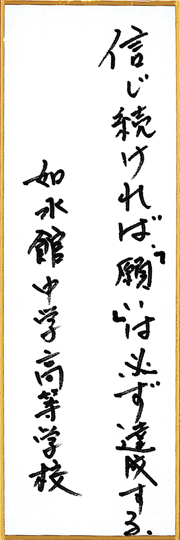 信じ続ければ「願い」は必ず達成する.
如水館中学高等学校